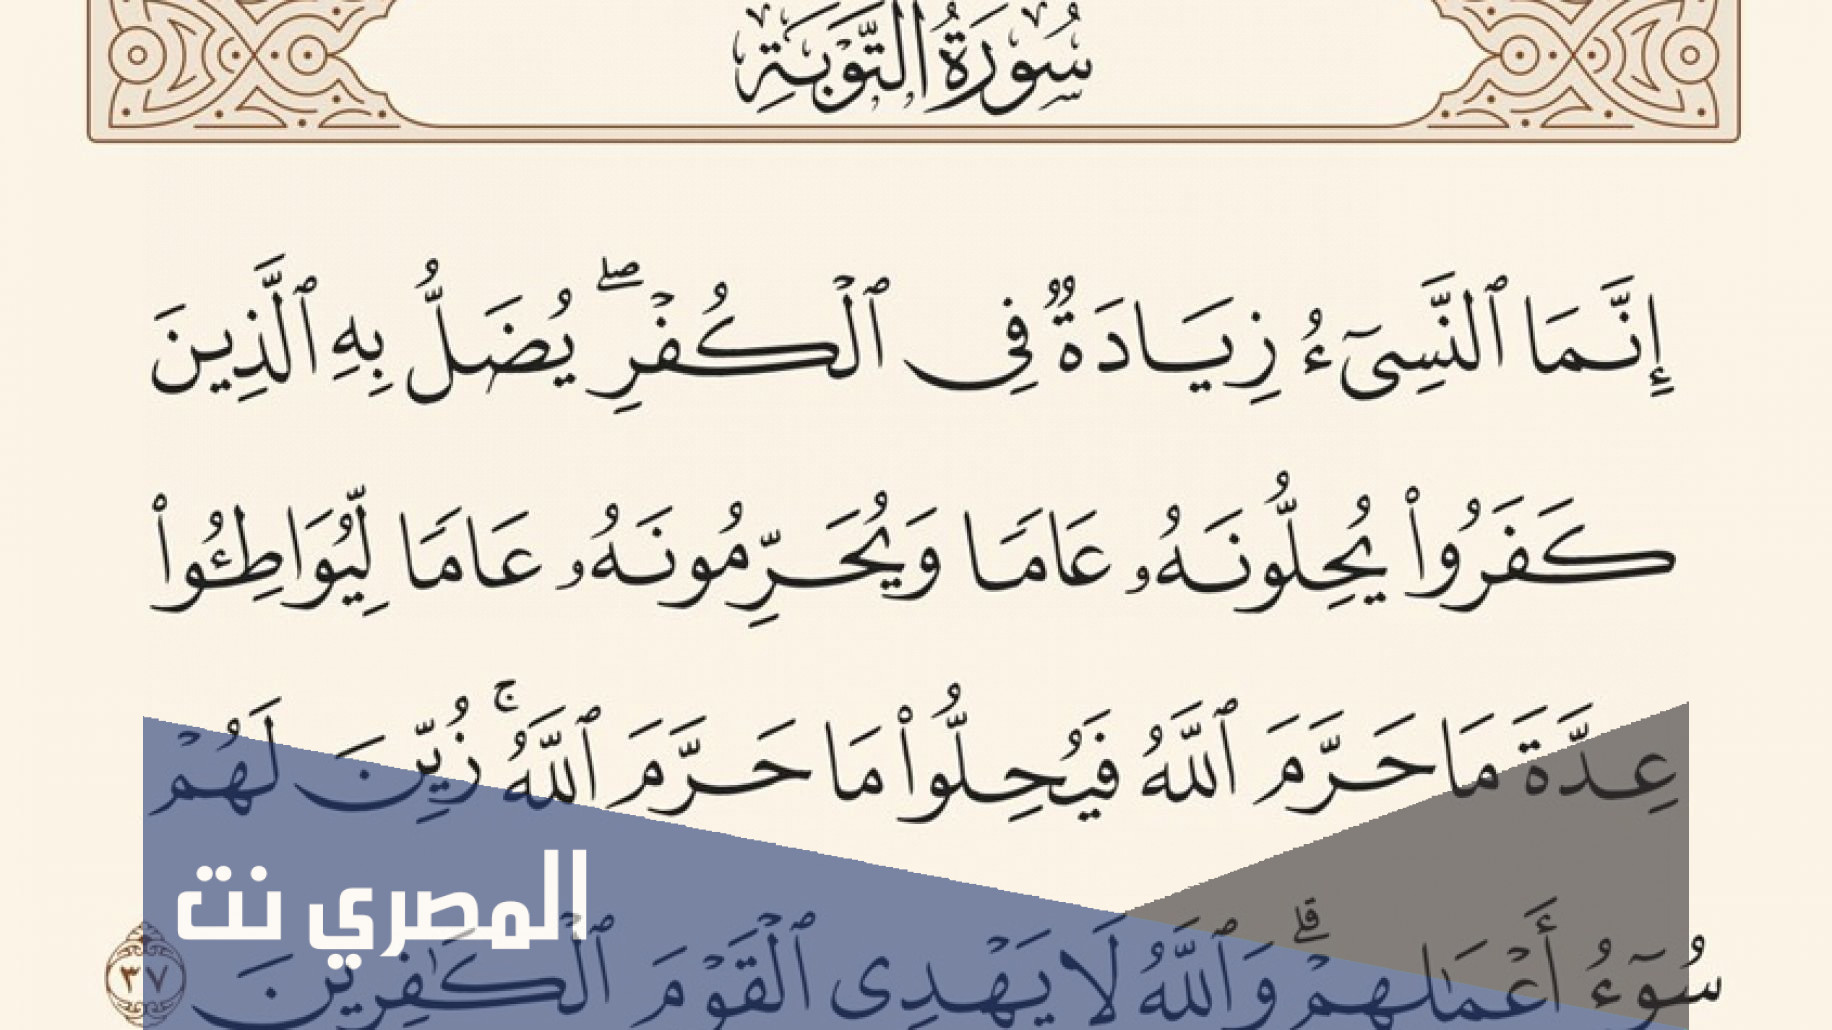 سُورَةُ التَّوْبَةِ
إِنَّمَا ٱلنَّسِىٓءُ زِيَادَةٌ فِى ٱلْكُفْرِ ۖ يُضَلُّ بِهِ ٱلَّذِينَ
كَفَرُوا۟ يُحِلُّونَهُۥ عَامًا وَيُحَرِّمُونَهُۥ عَامًا لِّيُوَاطِـُٔوا۟
عِدَّةَ مَا حَرَّمَ ٱللَّهُ فَيُحِلُّوا۟ مَا حَرَّمَ ٱللَّهُ ۚ زُيِّنَ لَهُمْ
سُوٓءُ أَعْمَٰلِهِمْ ۗ وَٱللَّهُ لَا يَهْدِى ٱلْقَوْمَ ٱلْكَٰفِرِينَ ٣٧
المصري نت